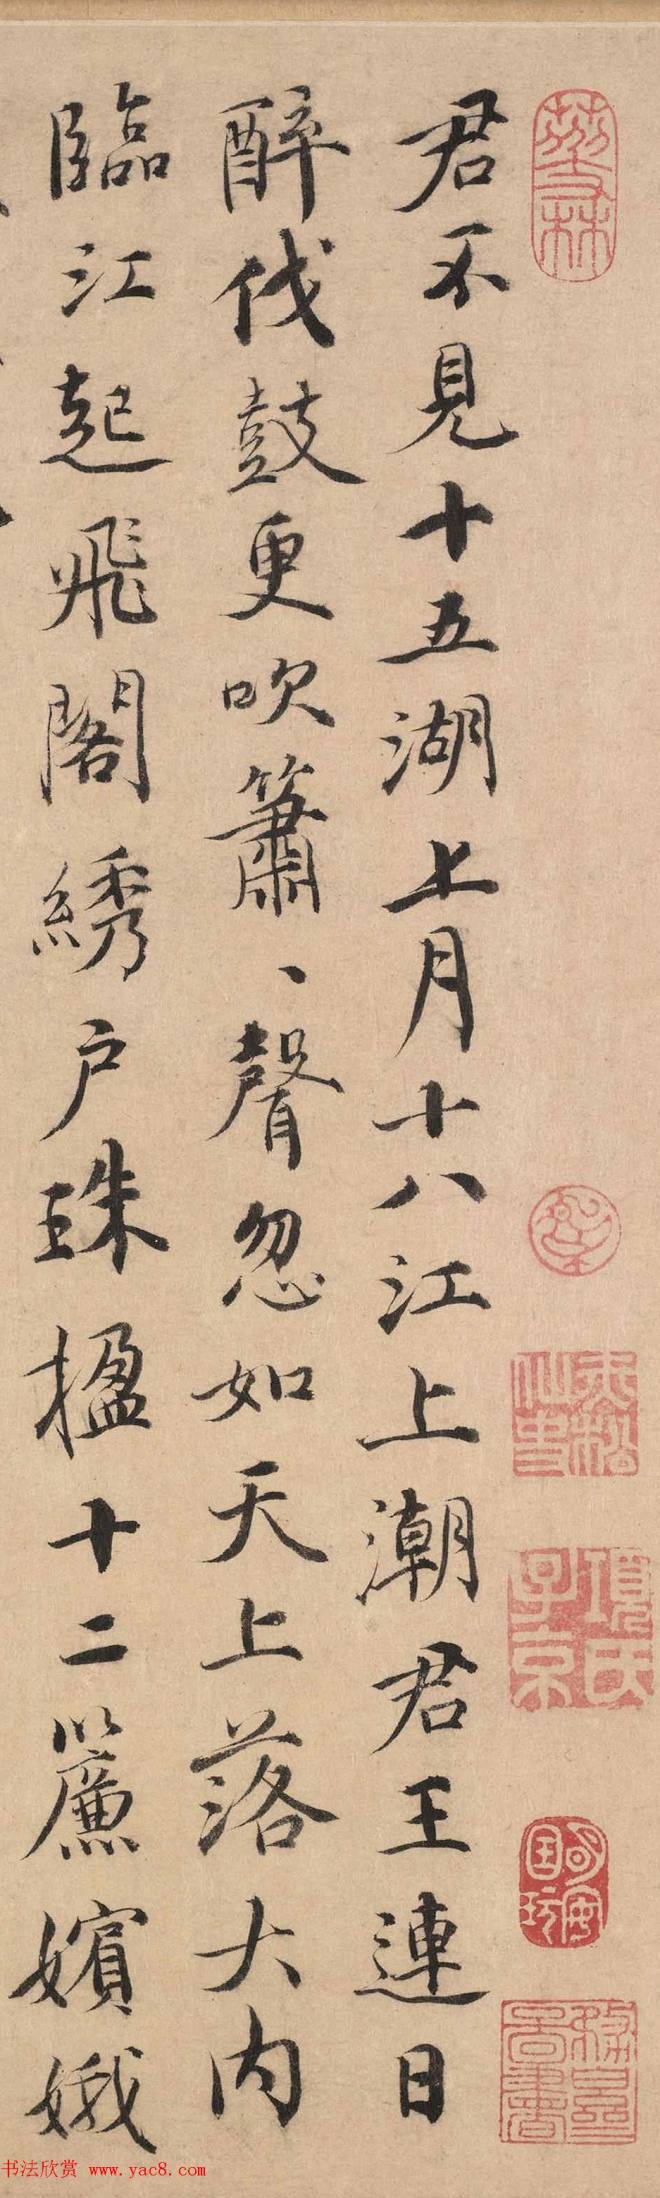 君不見十五湖上月十八江上潮君王連日
醉伐鼓更吹簫、聲忽如天上落大内
臨江起飛閣綉户珠楹十二簾嬪娥
項氏子京
书法欣赏 www.yac8.com